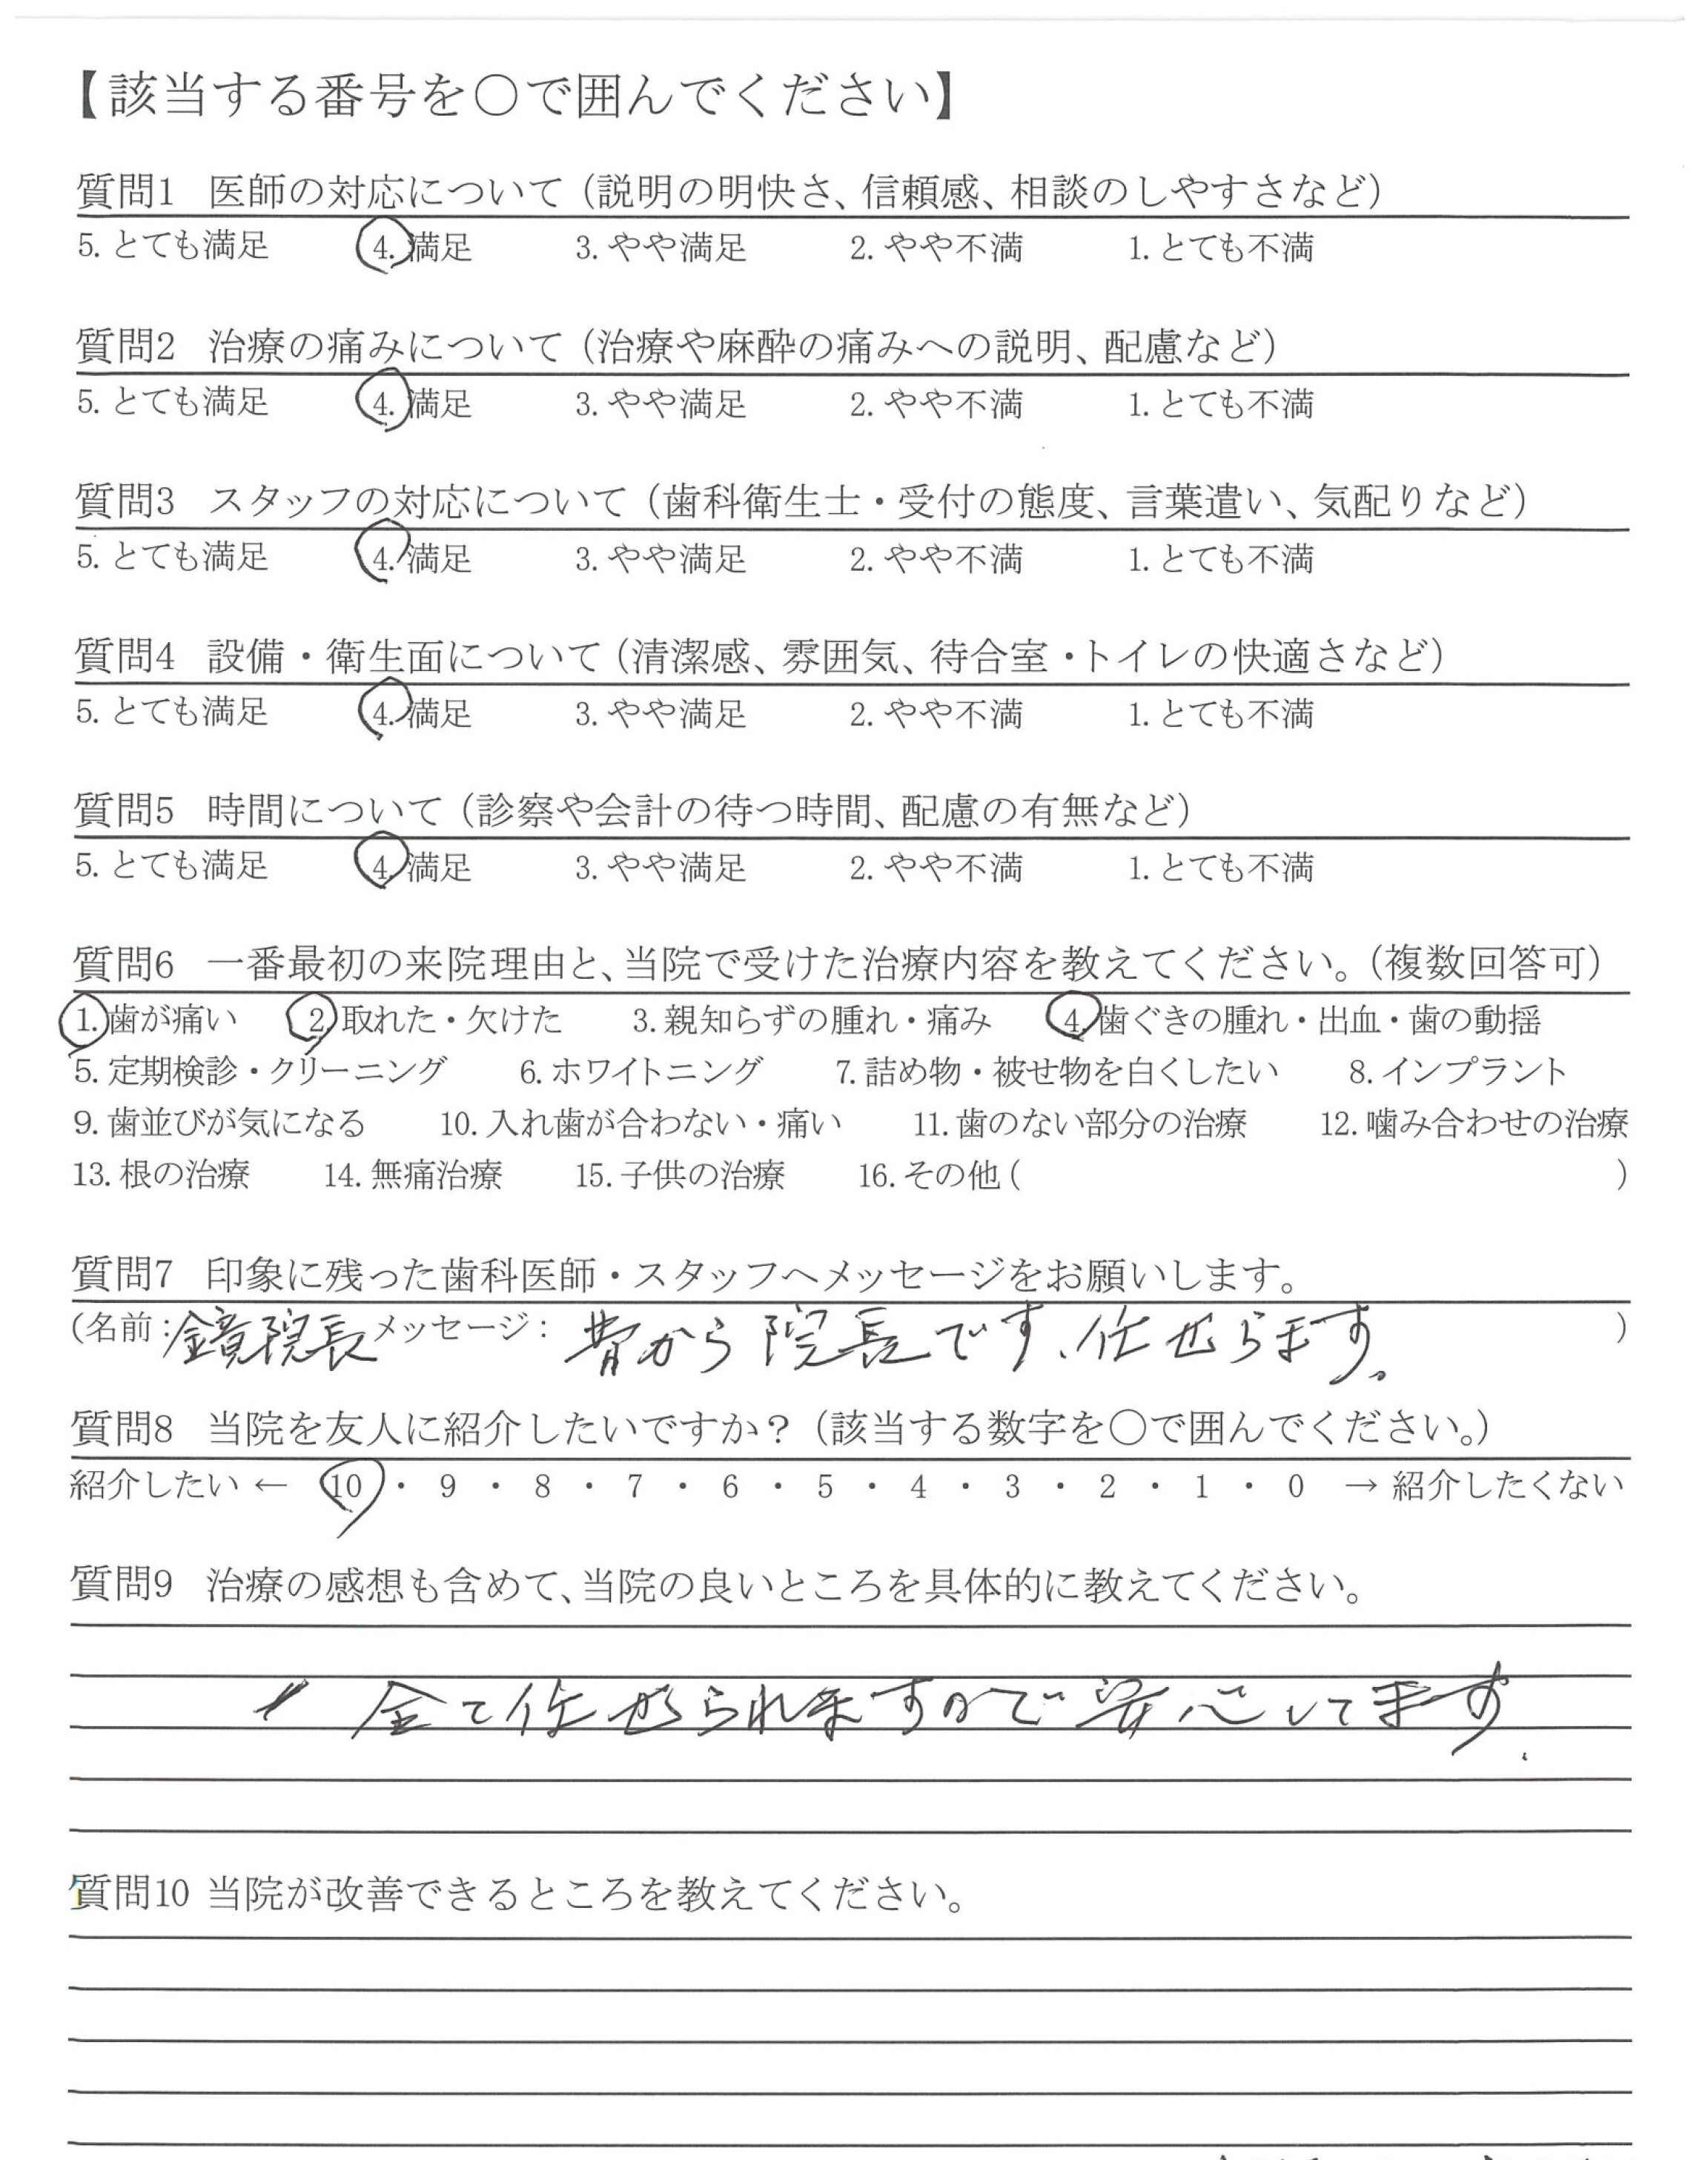 【該当する番号を〇で囲んでください】
質問1 医師の対応について（説明の明快さ、信頼感、相談のしやすさなど）
5. とても満足 4. 満足 3. やや満足 2. やや不満 1. とても不満
質問2 治療の痛みについて（治療や麻酔の痛みへの説明、配慮など）
5. とても満足 4. 満足 3. やや満足 2. やや不満 1. とても不満
質問3 スタッフの対応について（歯科衛生士・受付の態度、言葉遣い、気配りなど）
5. とても満足 4. 満足 3. やや満足 2. やや不満 1. とても不満
質問4 設備・衛生面について（清潔感、雰囲気、待合室・トイレの快適さなど）
5. とても満足 4. 満足 3. やや満足 2. やや不満 1. とても不満
質問5 時間について（診察や会計の待つ時間、配慮の有無など）
5. とても満足 4. 満足 3. やや満足 2. やや不満 1. とても不満
質問6 一番最初の来院理由と、当院で受けた治療内容を教えてください。（複数回答可）
1. 歯が痛い 2. 取れた・欠けた 3. 親知らずの腫れ・痛み 4. 歯ぐきの腫れ・出血・歯の動揺
5. 定期検診・クリーニング 6. ホワイトニング 7. 詰め物・被せ物を白くしたい 8. インプラント
9. 歯並びが気になる 10. 入れ歯が合わない・痛い 11. 歯のない部分の治療 12. 噛み合わせの治療
13. 根の治療 14. 無痛治療 15. 子供の治療 16. その他 ( )
質問7 印象に残った歯科医師・スタッフへメッセージをお願いします。
(名前: 鏡院長 メッセージ: 昔から院長です、任せらます。 )
質問8 当院を友人に紹介したいですか？（該当する数字を〇で囲んでください。）
紹介したい ← 10 ・ 9 ・ 8 ・ 7 ・ 6 ・ 5 ・ 4 ・ 3 ・ 2 ・ 1 ・ 0 → 紹介したくない
質問9 治療の感想も含めて、当院の良いところを具体的に教えてください。
全て任せられますので安心してます.
質問10 当院が改善できるところを教えてください。